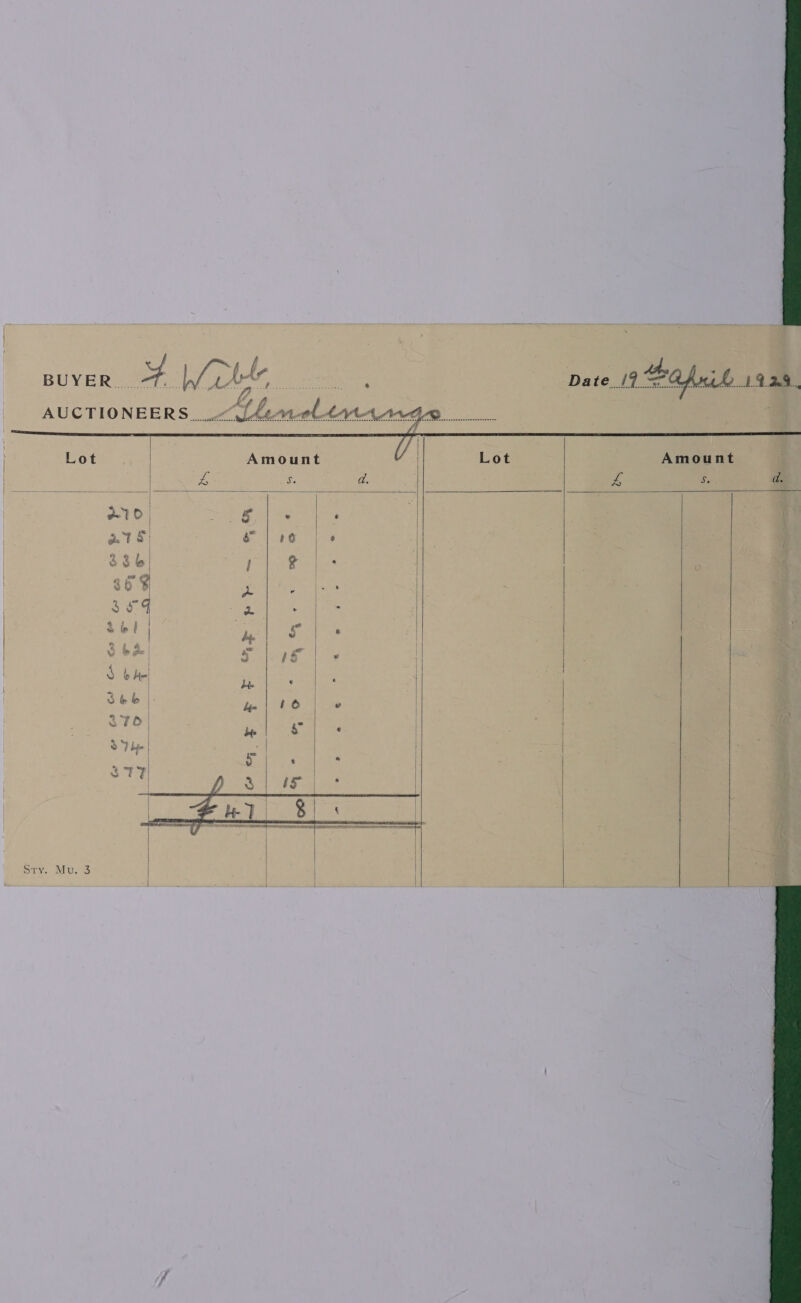 BUYER F.
Date 19th April 1929
AUCTIONEERS Glendinings
Lot Amount Lot Amount
£ s. d. £ s. d.
270 5 - -
275 5 10 -
336 1 8 -
358 2 - -
359 2 - -
361 4 5 -
362 5 15 -
364 4 - -
366 4 10 -
370 4 5 -
374 5 - -
377 3 15 -
£47 8 -
Sty. Mu. 3